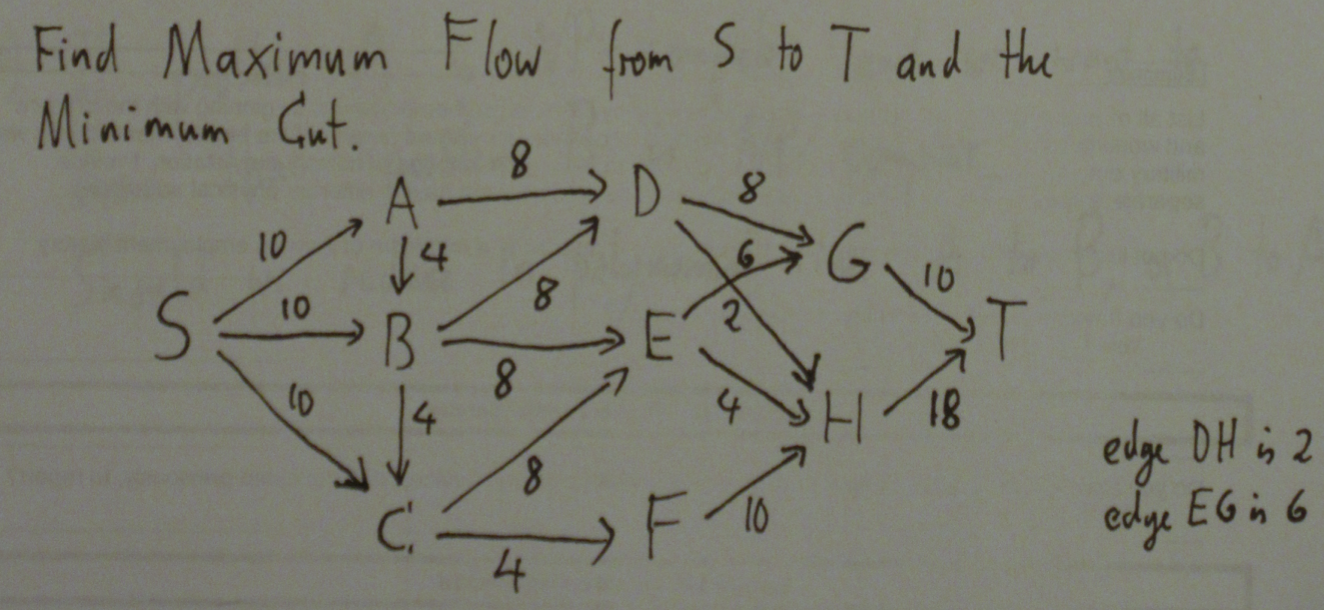 Find Maximum Flow from S to T and the
Minimum Cut.
8
A D 8
10 4 6 G 10
10 8 2
S B E T
8 4 H 18
10 4
8
C F 10
4
edge DH is 2
edge EG is 6